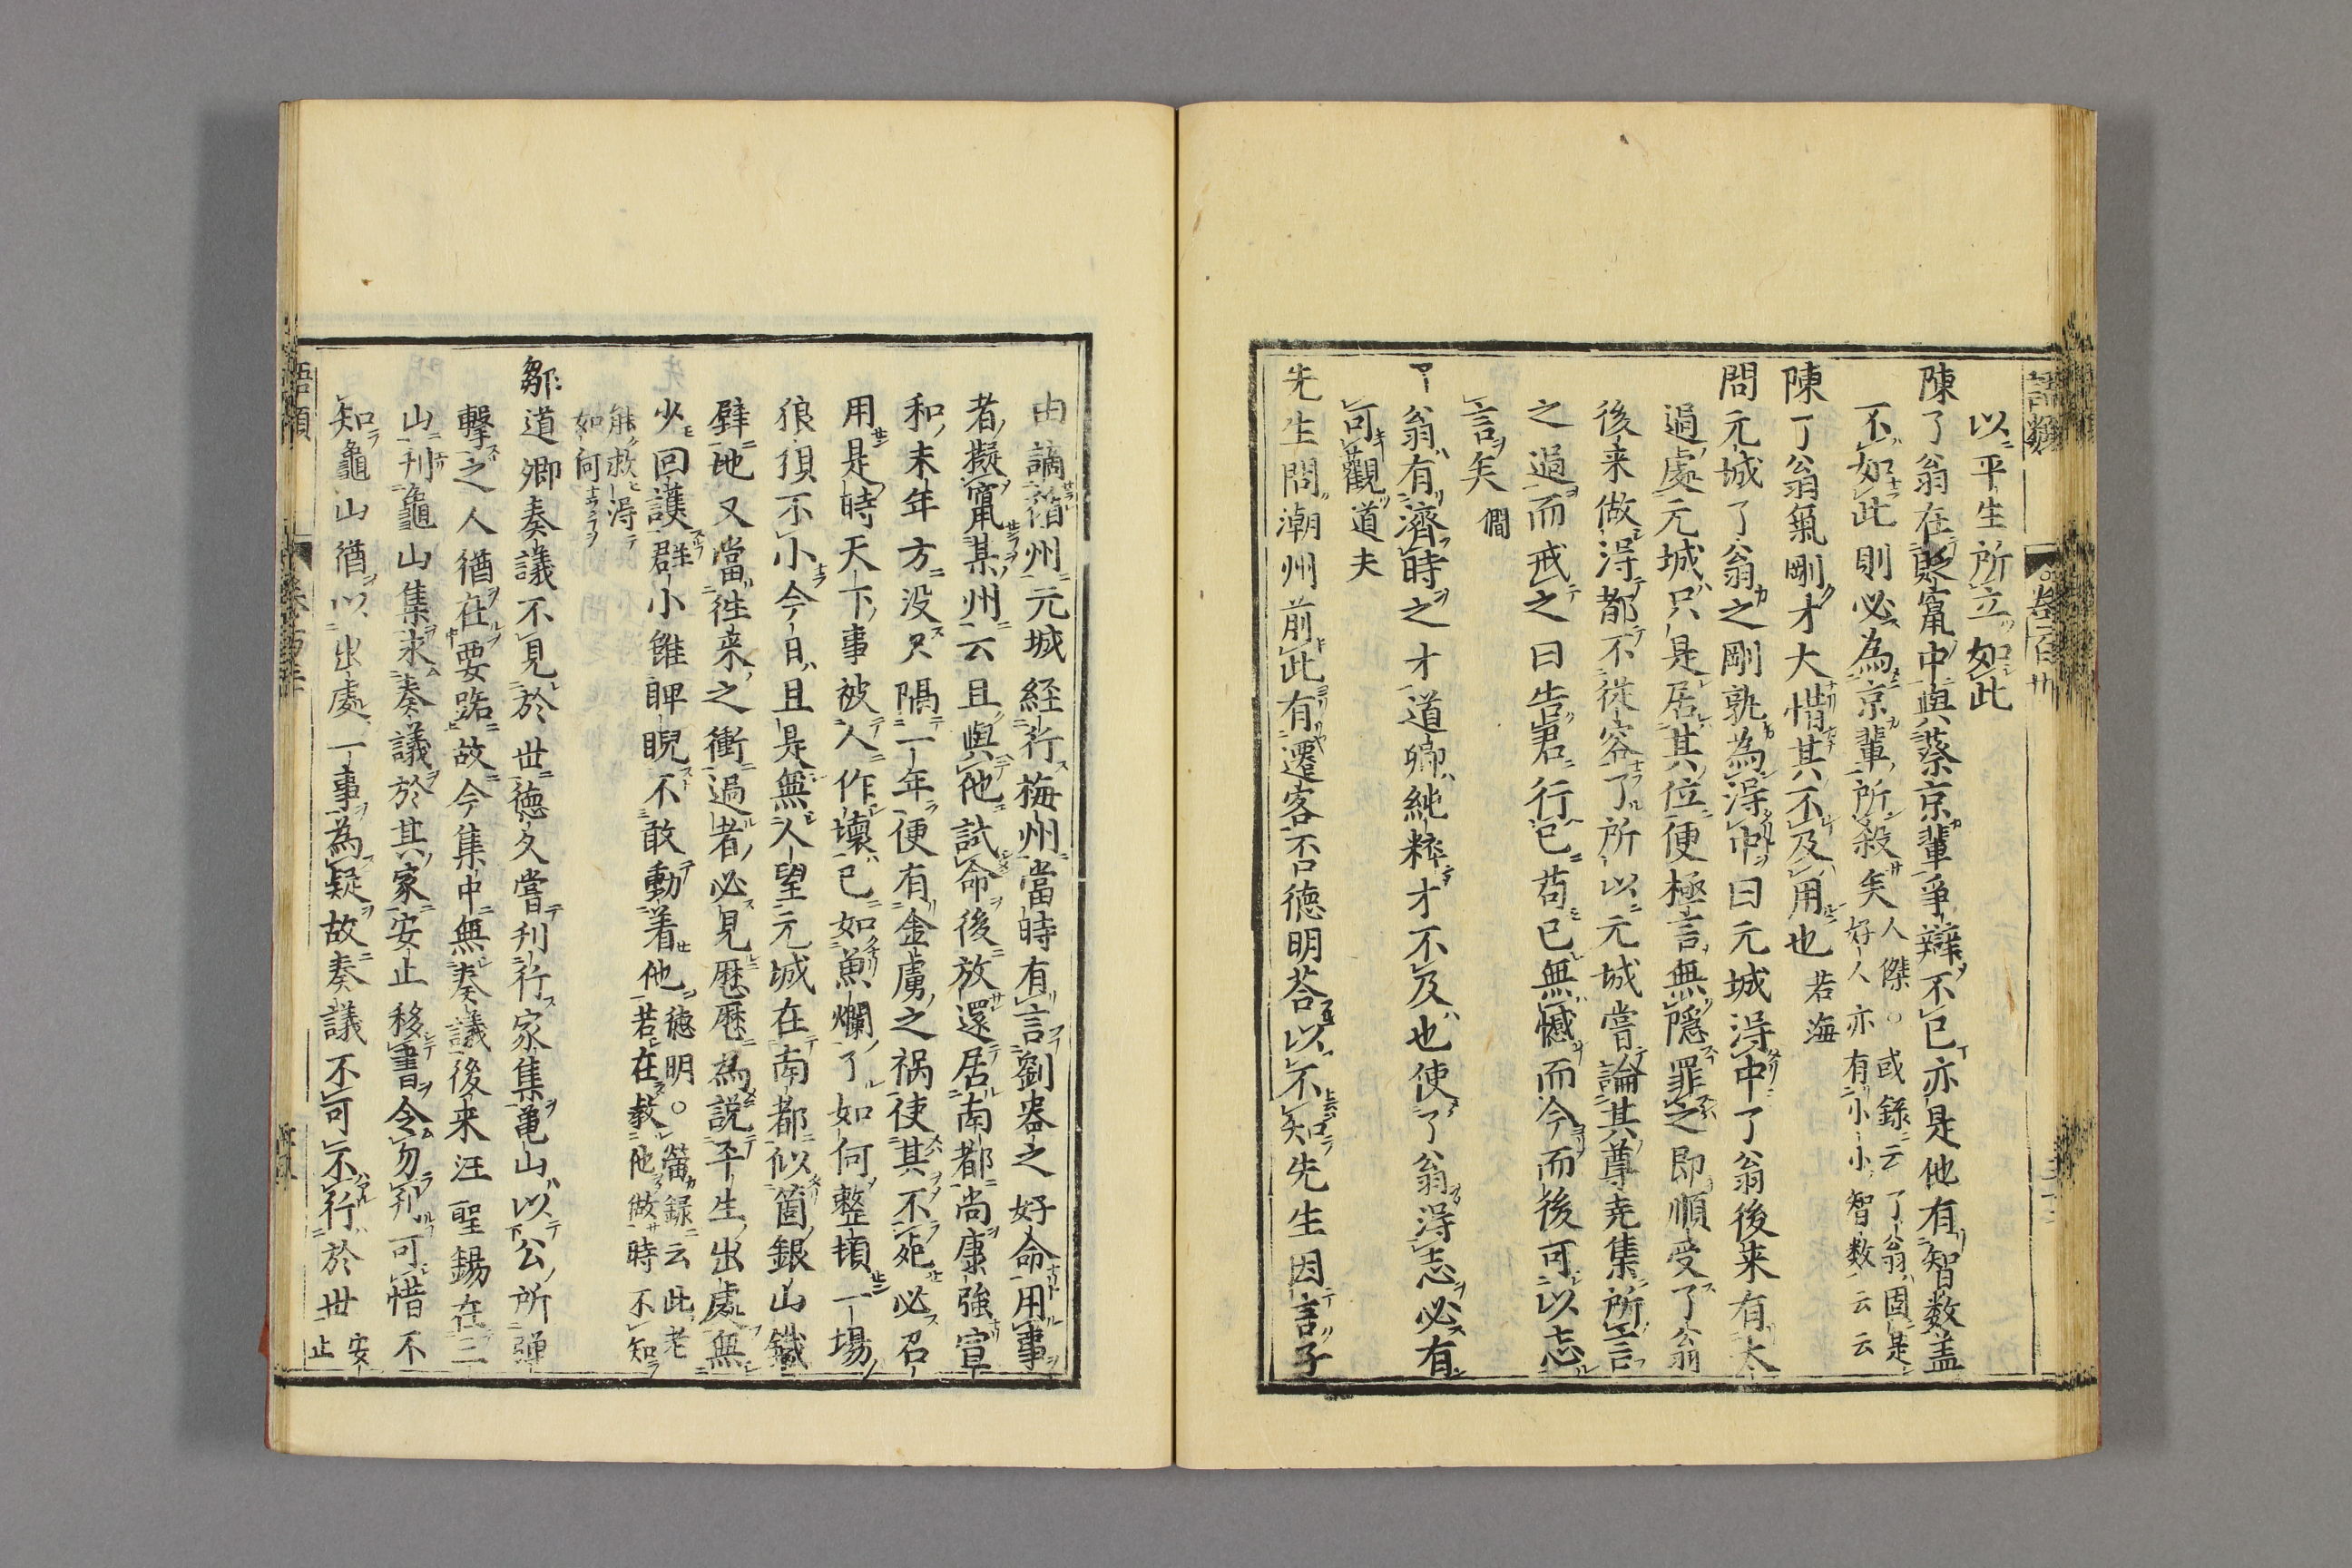 語類
卷一百卅
以平生所立如此
陳了翁在貶竄中與蔡京輩爭辯不已亦是他有智数盖
不如此則必為京輩所殺矣
人傑○或錄云了翁固是
好人亦有小小智数云云
陳了翁氣剛才大惜其不及用也若海
問元城了翁之剛孰為淂中曰元城淂中了翁後来有太
過處元城只是居其位便極言無隠罪之即順受了翁
後来做淂都不従容了所以元城嘗論其尊尭集所言
之過而戒之曰告君行已苟已無憾而今而後可以忘
言矣僩
了翁有濟時之才道卿純粹才不及也使了翁淂志必有
可觀道夫
先生問潮州前此有遷客否德明荅以不知先生因言子
由謫循州元城経行梅州當時有言劉器之好命用事
者擬竄某州云且與他試命後放還居南都尚康強宣
和末年方没只隔一年便有金虜之禍使其不死必召
用是時天下事被人作壞已如魚爛了如何整頓一場
狼狽不小今日且是無人望元城在南都似箇銀山鐵
壁地又當徃来之衝過者必見歴歴為說平生出處無
少回護群小雖睥睨不敢動着他
德明○僩録云此老
若在教他做時不知
能救淂
如何
鄒道卿奏議不見於世德久嘗刋行家集亀山以公所弾
擊之人猶在要路故今集中無奏議後来汪聖錫在三
山刋龜山集求奏議於其家安止移書令勿刋可惜不
知龜山猶以出處一事為疑故奏議不可不行於世
安
止
語類